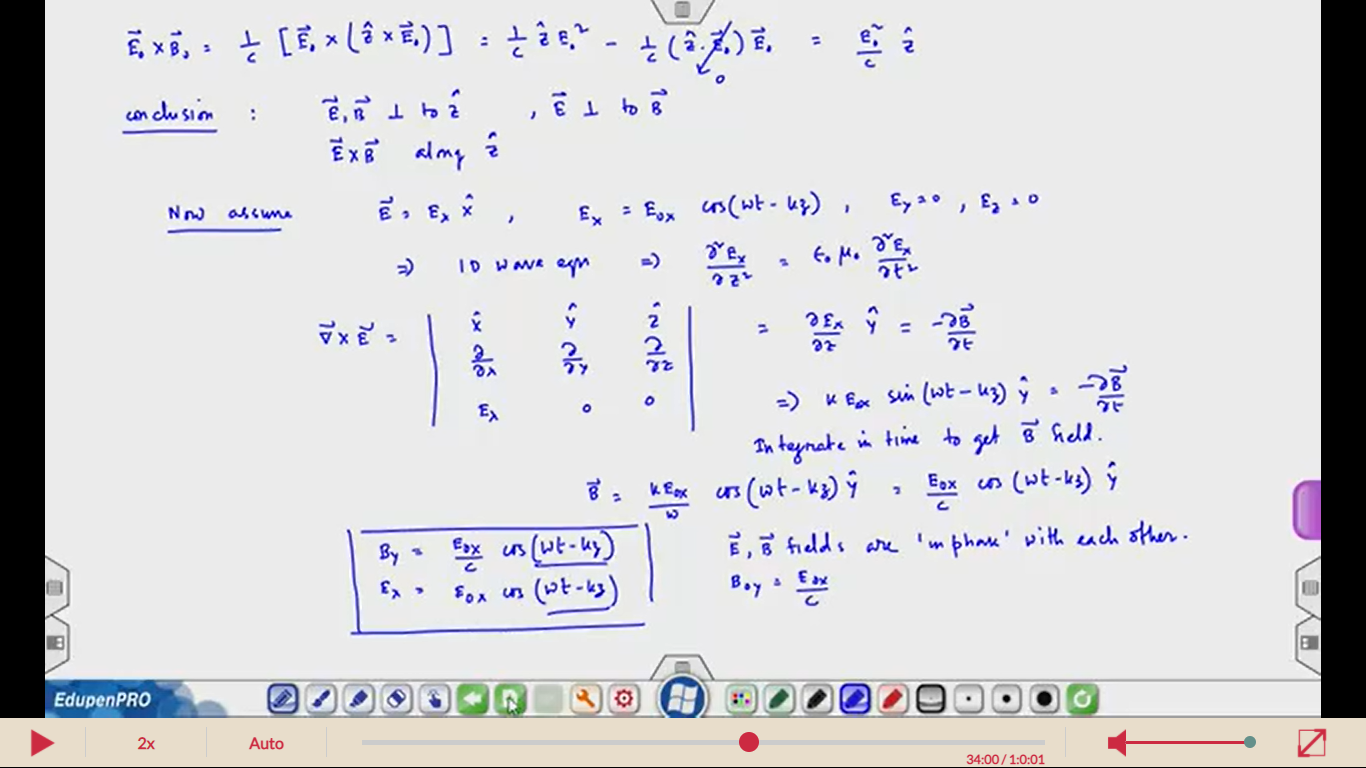 E⃗₀ × B⃗₀ = 1/c [E⃗₀ × (ẑ × E⃗₀)] = 1/c ẑ E₀² − 1/c (ẑ · E⃗₀) E⃗₀ = E₀²/c ẑ
0
conclusion : E⃗, B⃗ ⊥ to ẑ , E⃗ ⊥ to B⃗
E⃗ × B⃗ along ẑ
Now assume E⃗ = Eₓ x̂ , Eₓ = E₀ₓ cos(ωt − kz) , E_y = 0 , E_z = 0
⇒ 1D wave eqn ⇒ ∂²Eₓ/∂z² = ε₀ μ₀ ∂²Eₓ/∂t²
∇⃗ × E⃗ = | x̂ ŷ ẑ | = ∂Eₓ/∂z ŷ = −∂B⃗/∂t
∂/∂x ∂/∂y ∂/∂z
Eₓ 0 0
⇒ k E₀ₓ sin(ωt − kz) ŷ = −∂B⃗/∂t
Integrate in time to get B⃗ field.
B⃗ = kE₀ₓ/ω cos(ωt − kz) ŷ = E₀ₓ/c cos(ωt − kz) ŷ
B_y = E₀ₓ/c cos(ωt − kz)
Eₓ = E₀ₓ cos(ωt − kz)
E⃗, B⃗ fields are 'in phase' with each other.
B₀y = E₀ₓ/c
EdupenPRO
2x Auto 34:00 / 1:0:01